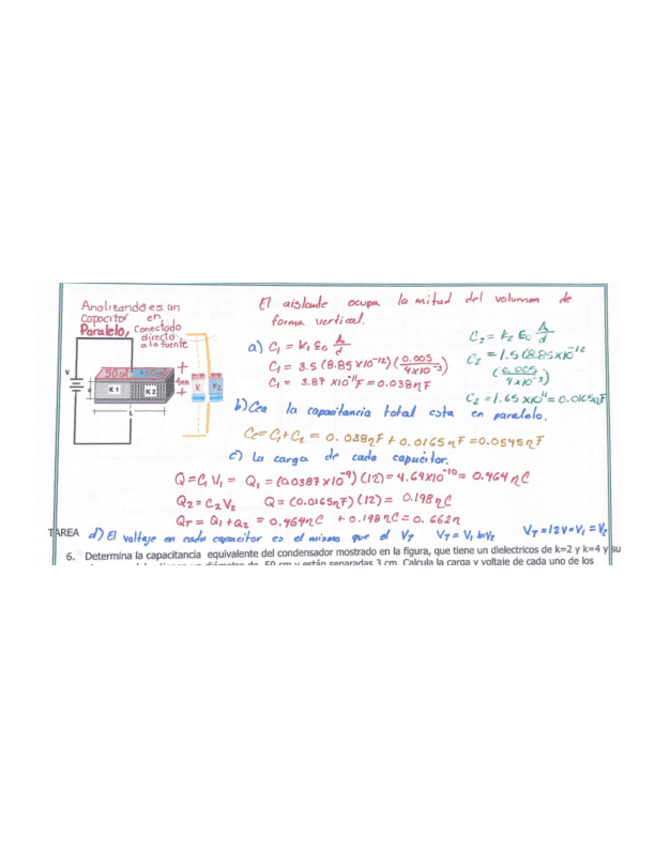 Analizando es un
Capacitor en
Paralelo, Conectado
directo
a la fuente
El aislante ocupa la mitad del volumen de
forma vertical.
V
50cm² 50cm²
4mm
K1 K2
K K2
L
a) C₁ = K₁ ε₀ A/d
C₁ = 3.5 (8.85 x10⁻¹²) (0.005/4x10⁻³)
C₁ = 3.87 x10⁻¹¹F = 0.038ηF
C₂ = K₂ ε₀ A/d
C₂ = 1.5 (8.85x10⁻¹²
(0.005/4x10⁻³)
C₂ = 1.65 x10⁻¹¹ = 0.0165ηF
b) Ceq la capacitancia total esta en paralelo.
Ce = C₁ + C₂ = 0.038ηF + 0.0165ηF = 0.0545ηF
c) La carga de cada capacitor.
Q = C₁ V₁ = Q₁ = (0.0387x10⁻⁹) (12) = 4.64x10⁻¹⁰ = 0.464 ηC
Q₂ = C₂ V₂ Q = (0.0165ηF) (12) = 0.198 ηC
QT = Q₁ + Q₂ = 0.464ηC + 0.198 ηC = 0.662η
TAREA d) El voltaje en cada capacitor es el mismo que el VT VT = V₁ = V₂ VT = 12V = V₁ = V₂
6. Determina la capacitancia equivalente del condensador mostrado en la figura, que tiene un dielectricos de k=2 y k=4 y su
diámetro de 50 cm y están separadas 3 cm. Calcula la carga y voltaje de cada uno de los